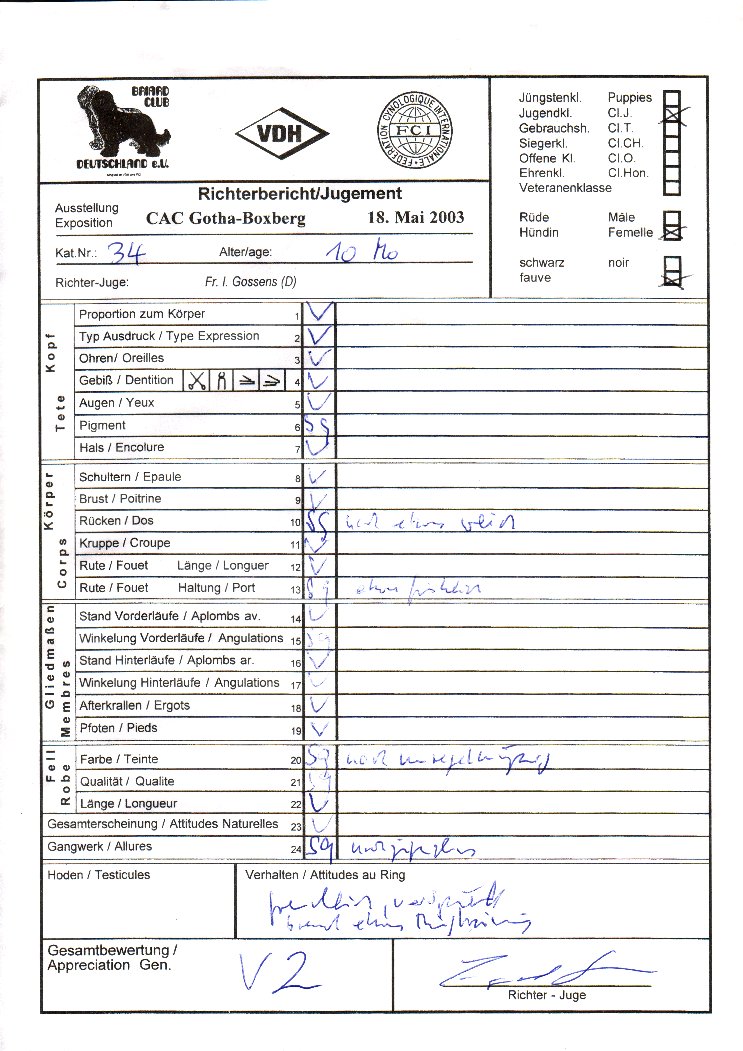 BRIARD
CLUB
DEUTSCHLAND e.V.
VDH
FEDERATION CYNOLOGIQUE INTERNATIONALE
FCI
Jüngstenkl. Puppies
Jugendkl. Cl.J.
Gebrauchsh. Cl.T.
Siegerkl. Cl.CH.
Offene Kl. Cl.O.
Ehrenkl. Cl.Hon.
Veteranenklasse
Rüde Mâle
Hündin Femelle
schwarz noir
fauve
Richterbericht/Jugement
Ausstellung
Exposition CAC Gotha-Boxberg 18. Mai 2003
Kat.Nr.: 34 Alter/age: 10 Mo
Richter-Juge: Fr. I. Gossens (D)
Kopf
Tete
Proportion zum Körper 1 V
Typ Ausdruck / Type Expression 2 V
Ohren/ Oreilles 3 V
Gebiß / Dentition 4 V
Augen / Yeux 5 V
Pigment 6 Sg
Hals / Encolure 7 V
Körper
Corps
Schultern / Epaule 8 V
Brust / Poitrine 9 V
Rücken / Dos 10 Sg noch etwas weich
Kruppe / Croupe 11 V
Rute / Fouet Länge / Longuer 12 V
Rute / Fouet Haltung / Port 13 Sg etwas
Gliedmaßen
Membres
Stand Vorderläufe / Aplombs av. 14 V
Winkelung Vorderläufe / Angulations 15 Sg
Stand Hinterläufe / Aplombs ar. 16 V
Winkelung Hinterläufe / Angulations 17 V
Afterkrallen / Ergots 18 V
Pfoten / Pieds 19 V
Fell
Robe
Farbe / Teinte 20 Sg noch unregelmäßig
Qualität / Qualite 21 Sg
Länge / Longueur 22 V
Gesamterscheinung / Attitudes Naturelles 23 V
Gangwerk / Allures 24 Sg
Hoden / Testicules
Verhalten / Attitudes au Ring
freundlich, verspielt
braucht etwas Ringtraining
Gesamtbewertung /
Appreciation Gen. V2
Richter - Juge